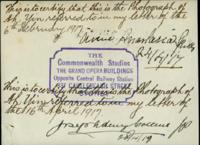 This is to certify that this is the Photograph of
Ah Yin referred to in my letter of the
6th February 1917
THE
Commonwealth Studios
THE GRAND OPERA BUILDINGS
Opposite Central Railway Station
CASTLEREAGH STREET
This is to certify that this is the Photograph of
Ah Yin referred to in my letter of
the 16th April 1917